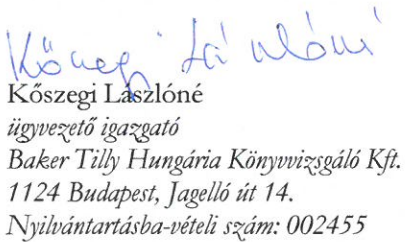 Kőszegi Lászlóné
Kőszegi Lászlóné
ügyvezető igazgató
Baker Tilly Hungária Könyvvizsgáló Kft.
1124 Budapest, Jagelló út 14.
Nyilvántartásba-vételi szám: 002455